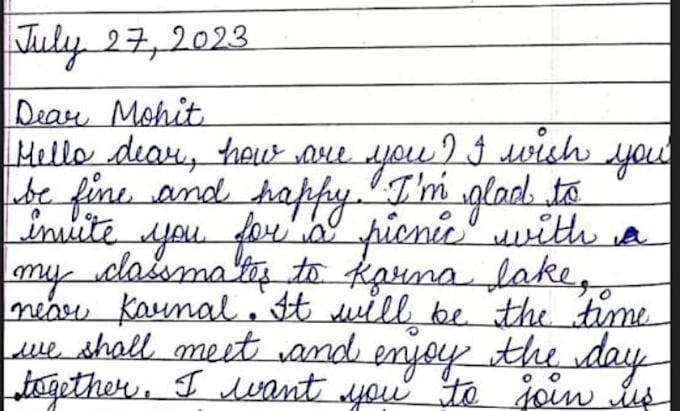 July 27, 2023
Dear Mohit
Hello dear, how are you? I wish you
be fine and happy. I'm glad to
invite you for a picnic with a
my classmates to Karna lake,
near Karnal. It will be the time
we shall meet and enjoy the day
together. I want you to join us